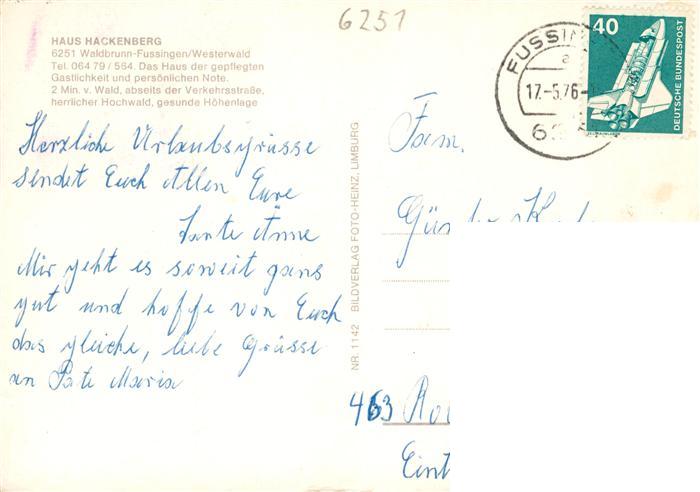 6251
HAUS HACKENBERG
6251 Waldbrunn-Fussingen/Westerwald
Tel. 064 79 / 564. Das Haus der gepflegten
Gastlichkeit und persönlichen Note.
2 Min. v. Wald, abseits der Verkehrsstraße,
herrlicher Hochwald, gesunde Höhenlage
Herzliche Urlaubsgrüsse
sendet Euch Allen Eure
Tante Änne
Mir geht es soweit ganz
gut und hoffe von Euch
das gleiche, liebe Grüsse
an Pate Maria
NR. 1142 BILDVERLAG FOTO-HEINZ, LIMBURG
FUSSIN
a
17.-5.76
62
40
DEUTSCHE BUNDESPOST
Fam.
Gün
463